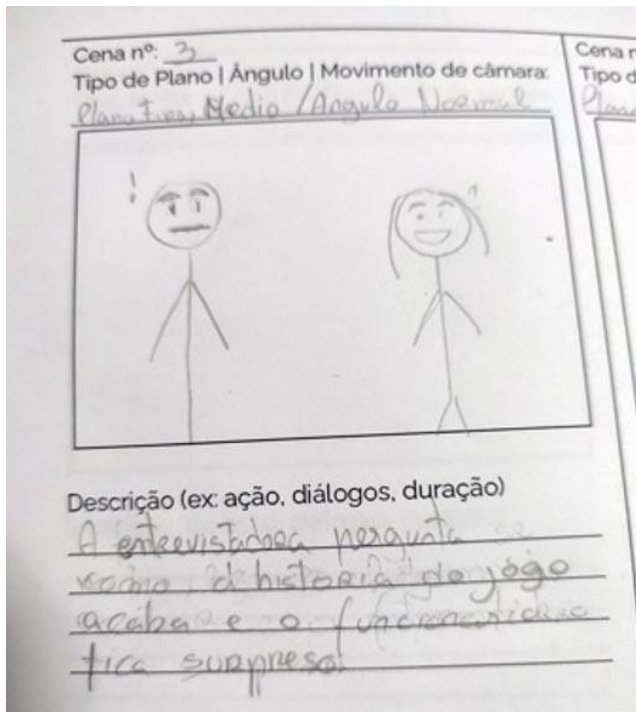 Cena nº: 3
Tipo de Plano | Ângulo | Movimento de câmara:
Plano Medio / Angulo Normal
!
Descrição (ex: ação, diálogos, duração)
A entrevistadora pergunta se
como a historia do jogo
acaba e o funcionario
fica surpreso
Cena n
Tipo d